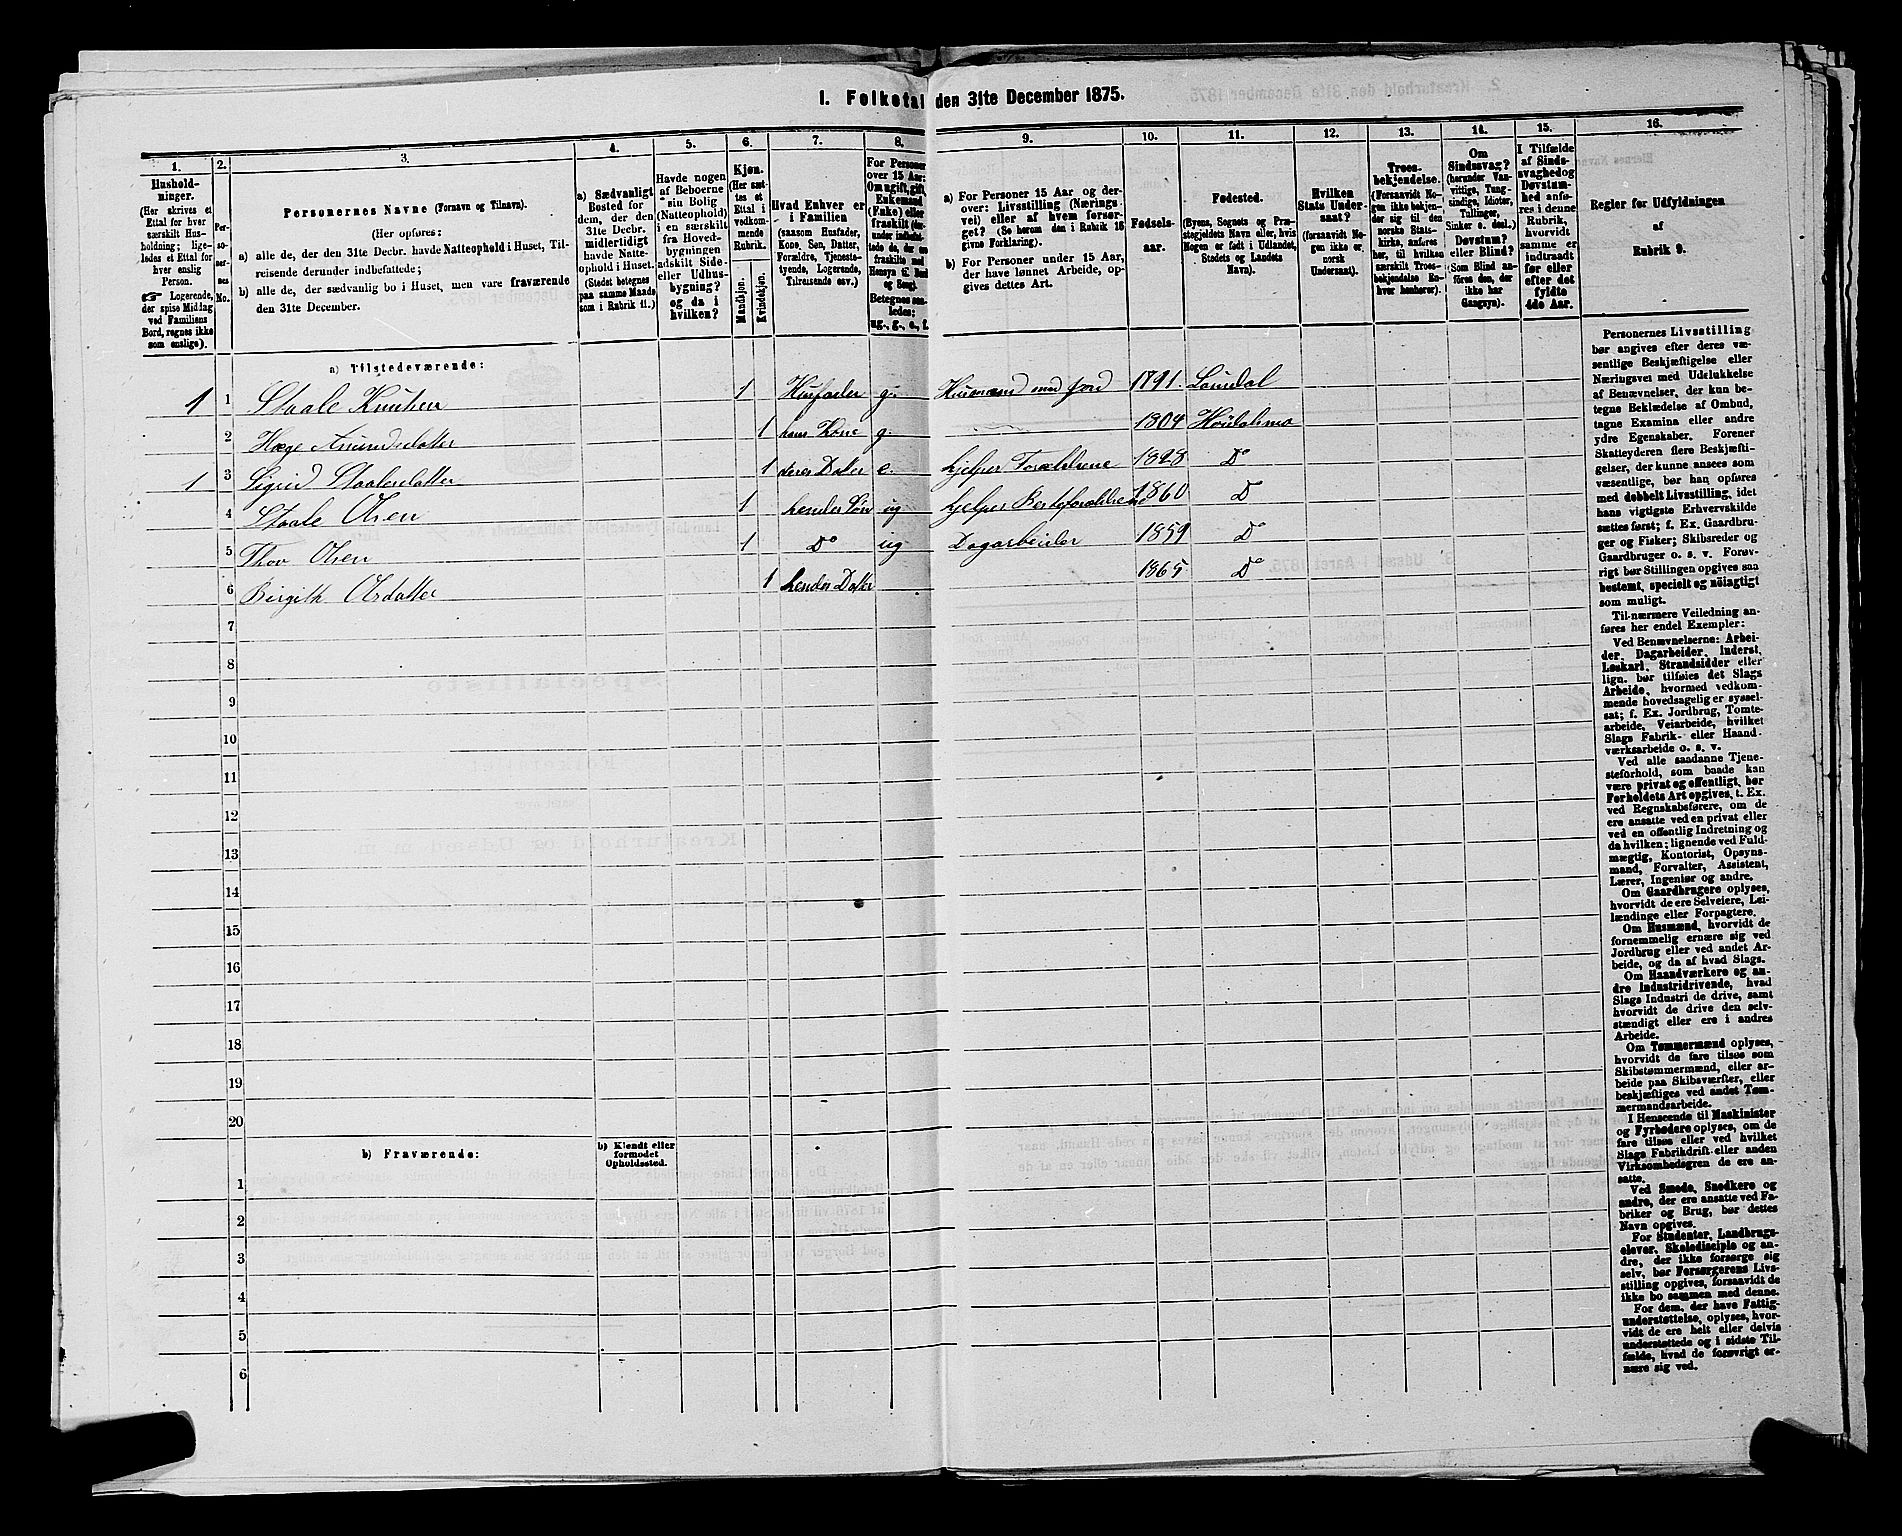 I. Folketal den 31te December 1875.
1.
2.
3.
4.
5.
6.
7.
8.
9.
10.
11.
12.
13.
14.
15.
16.
Hushold-
ninger.
(Her skrives et
Ettal for hver
særskilt Hus-
holdning; lige-
ledes et Ettal for
hver enslig
Person.
☞ Logerende,
der spise Middag
ved Familiens
Bord, regnes ikke
som enslige).
Per-
so-
ner-
nes
No.
Personernes Navne (Fornavn og Tilnavn).
(Her opføres:
a) alle de, der den 31te Decbr. havde Natteophold i Huset, Til-
reisende derunder indbefattede;
b) alle de, der sædvanlig bo i Huset, men vare fraværende
den 31te December.
a) Sædvanligt
Bosted for
dem, der den
31te Decbr.
midlertidigt
havde Natte-
ophold i Huset.
(Stedet betegnes
paa samme Maade
som i Rubrik 11.)
Havde nogen
af Beboerne
sin Bolig
(Natteophold)
i en særskilt
fra Hoved-
bygningen
adskilt Side-
eller Udhus-
bygning?
og da i
hvilken?
Kjøn.
(Her sæt-
tes et
Ettal i
vedkom-
mende
Rubrik.
Mandkjøn.
Kvindekjøn.
Hvad Enhver er
i Familien
(saasom Husfader,
Kone, Søn, Datter,
Forældre, Tjeneste-
tyende, Logerende,
Tilreisende osv.)
For Personer
over 15 Aar:
Om ugift, gift,
Enkemand
(Enke) eller
fraskilt
Betegnes saa-
ledes:
ug., g., e., f.
a) For Personer 15 Aar og der-
over: Livsstilling (Nærings-
vei) eller af hvem forsør-
get? (Se herom den i Rubrik 16
givne Forklaring).
b) For Personer under 15 Aar,
der have lønnet Arbeide, op-
gives dettes Art.
Fødsels-
aar.
Fødested.
(Byens, Sognets og Præ-
stegjeldets Navn eller, hvis
Nogen er født i Udlandet,
Stedets og Landets
Navn).
Hvilken
Stats Under-
saat?
(forsaavidt No-
gen ikke er
norsk
Undersaat).
Troes-
bekjendelse.
(Forsaavidt No-
gen ikke bekjen-
der sig til den
norske Stats-
kirke, anføres
her, til hvilken
særskilt Troes-
bekjendelse En-
hver henhører).
Om
Sindssvag?
(herunder Van-
vittige, Tung-
sindige, Idioter,
Tullinger,
Sinker o. desl.)
Døvstum?
eller Blind?
(Som Blind an-
føres den, der
ikke har
Gangsyn).
I Tilfælde
af Sinds-
svaghed og
Døvstum-
hed anfø-
res i denne
Rubrik,
hvorvidt
samme er
indtraadt
før eller
efter det
fyldte
4de Aar.
Regler for Udfyldningen
af
Rubrik 9.
a) Tilstedeværende:
1 1 Staale Knutsen 1 Husfader g. Husmand med Jord 1791. Laurdal
2 Hæge Amundsdatter 1 hans Kone g. 1804 Høidalsmo
1 3 Sigrid Staalesdatter 1 deres Datter e. hjelper Forældrene 1828 Do
4 Staale Olsen 1 hendes Søn ug hjelper Besteforældrene 1860 Do
5 Thov Olsen 1 Do ug Dagarbeider 1859 Do
6 Birgith Olsdatter 1 hendes Datter 1865 Do
7
8
9
10
11
12
13
14
15
16
17
18
19
20
b) Fraværende:
b) Kjendt eller
formodet
Opholdssted.
1
2
3
4
5
6
Personernes Livsstilling
bør angives efter deres væ-
sentlige Beskjæftigelse eller
Næringsvei med Udelukkelse
af Benævnelser, der kun be-
tegne Beklædelse af Ombud,
tagne Examina eller andre
ydre Egenskaber. Forener
Skatteyderen flere Beskjæfti-
gelser, der kunne ansees som
væsentlige, bør han opføres
med dobbelt Livsstilling, idet
hans vigtigste Erhvervskilde
sættes først; f. Ex. Gaardbru-
ger og Fisker; Skibsreder og
Gaardbruger o. s. v. Forøv-
rigt bør Stillingen opgives saa
bestemt, specielt og nöiagtigt
som muligt.
Til nærmere Veiledning an-
føres her endel Exempler:
Ved Benævnelserne: Arbei-
der, Dagarbeider, Inderst,
Løskarl, Strandsidder eller
lign. bør tilføies det Slags
Arbeide, hvormed vedkom-
mende hovedsagelig er syssel-
sat; f. Ex. Jordbrug, Tomte-
arbeide, Veiarbeide, hvilket
Slags Fabrik- eller Haand-
værksarbeide o. s. v.
Ved alle saadanne Tjene-
steforhold, som baade kan
være privat og offentligt, bør
Forholdets Art opgives, t. Ex.
ved Regnskabsførere, om de
ere ansatte ved en privat eller
ved en offentlig Indretning og
da hvilken; lignende ved Fuld-
mægtig, Kontorist, Opsyns-
mand, Forvalter, Assistent,
Lærer, Ingeniør og andre.
Om Gaardbrugere oplyses,
hvorvidt de ere Selveiere, Lei-
lændinge eller Forpagtere.
Om Husmænd, hvorvidt de
fornemmelig ernære sig ved
Jordbrug eller ved andet Ar-
beide, og da af hvad Slags.
Om Haandværkere og an-
dre Industridrivende, hvad
Slags Industri de drive, samt
hvorvidt de drive den selv-
stændigt eller ere i andres
Arbeide.
Om Tømmermænd oplyses,
hvorvidt de fare tilsøs som
Skibstømmermænd, eller ar-
beide paa Skibsværfter, eller
beskjæftiges ved andet Tøm-
mermandsarbeide.
I Henseende til Maskinister
og Fyrbødere oplyses, om de
fare tilsøs eller ved hvilket
Slags Fabrikdrift eller anden
Virksomhedsgren de ere an-
satte.
Ved Smede, Snedkere og
andre, der ere ansatte ved Fa-
briker og Brug, bør dettes
Navn opgives.
For Studenter, Landbrugs-
elever, Skoledisciple og an-
dre, der ikke forsørge sig
selv, bør Forsørgerens Livs-
stilling opgives, forsaavidt de
ikke bo sammen med denne.
For dem, der have Fattig-
understøttelse, oplyses, hvor-
vidt de ere helt eller delvis
understøttede og i sidste Til-
fælde, hvad de forøvrigt er-
nære sig ved.